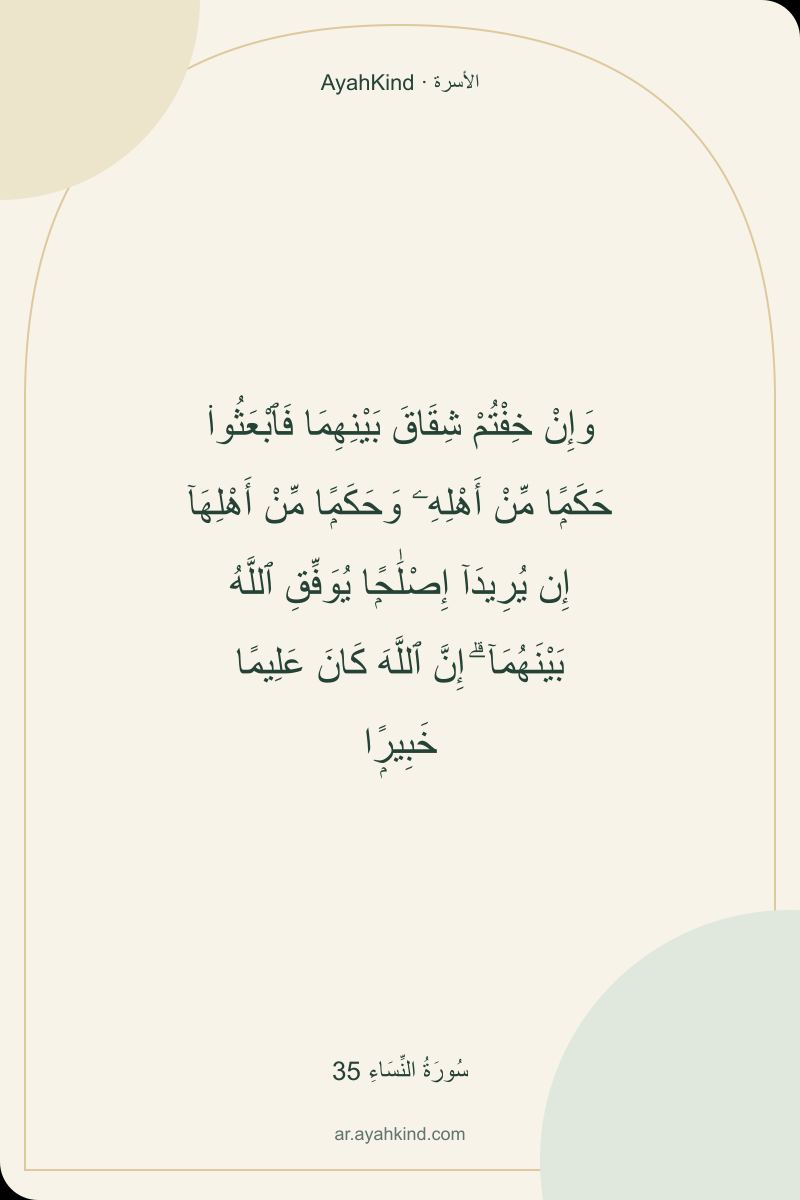 AyahKind · الأسرة
وَإِنْ خِفْتُمْ شِقَاقَ بَيْنِهِمَا فَٱبْعَثُوا۟
حَكَمًۭا مِّنْ أَهْلِهِۦ وَحَكَمًۭا مِّنْ أَهْلِهَآ
إِن يُرِيدَآ إِصْلَٰحًۭا يُوَفِّقِ ٱللَّهُ
بَيْنَهُمَآ ۗ إِنَّ ٱللَّهَ كَانَ عَلِيمًا
خَبِيرًۭا
سُورَةُ النِّسَاءِ 35
ar.ayahkind.com